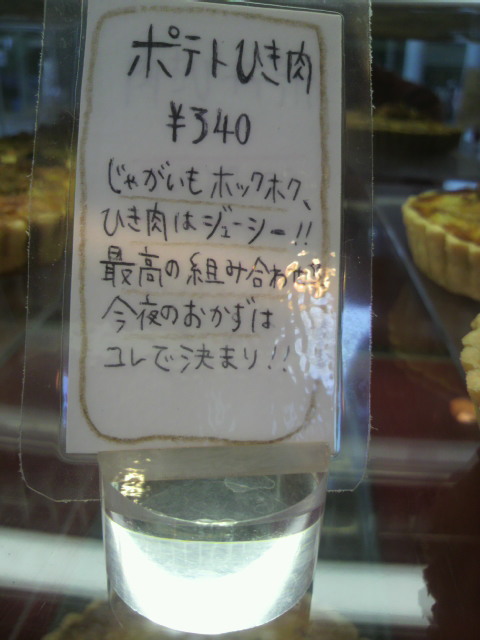 ポテトひき肉
¥340
じゃがいもホックホク、
ひき肉はジューシー!!
最高の組み合わせ
今夜のおかずは
コレで決まり!!